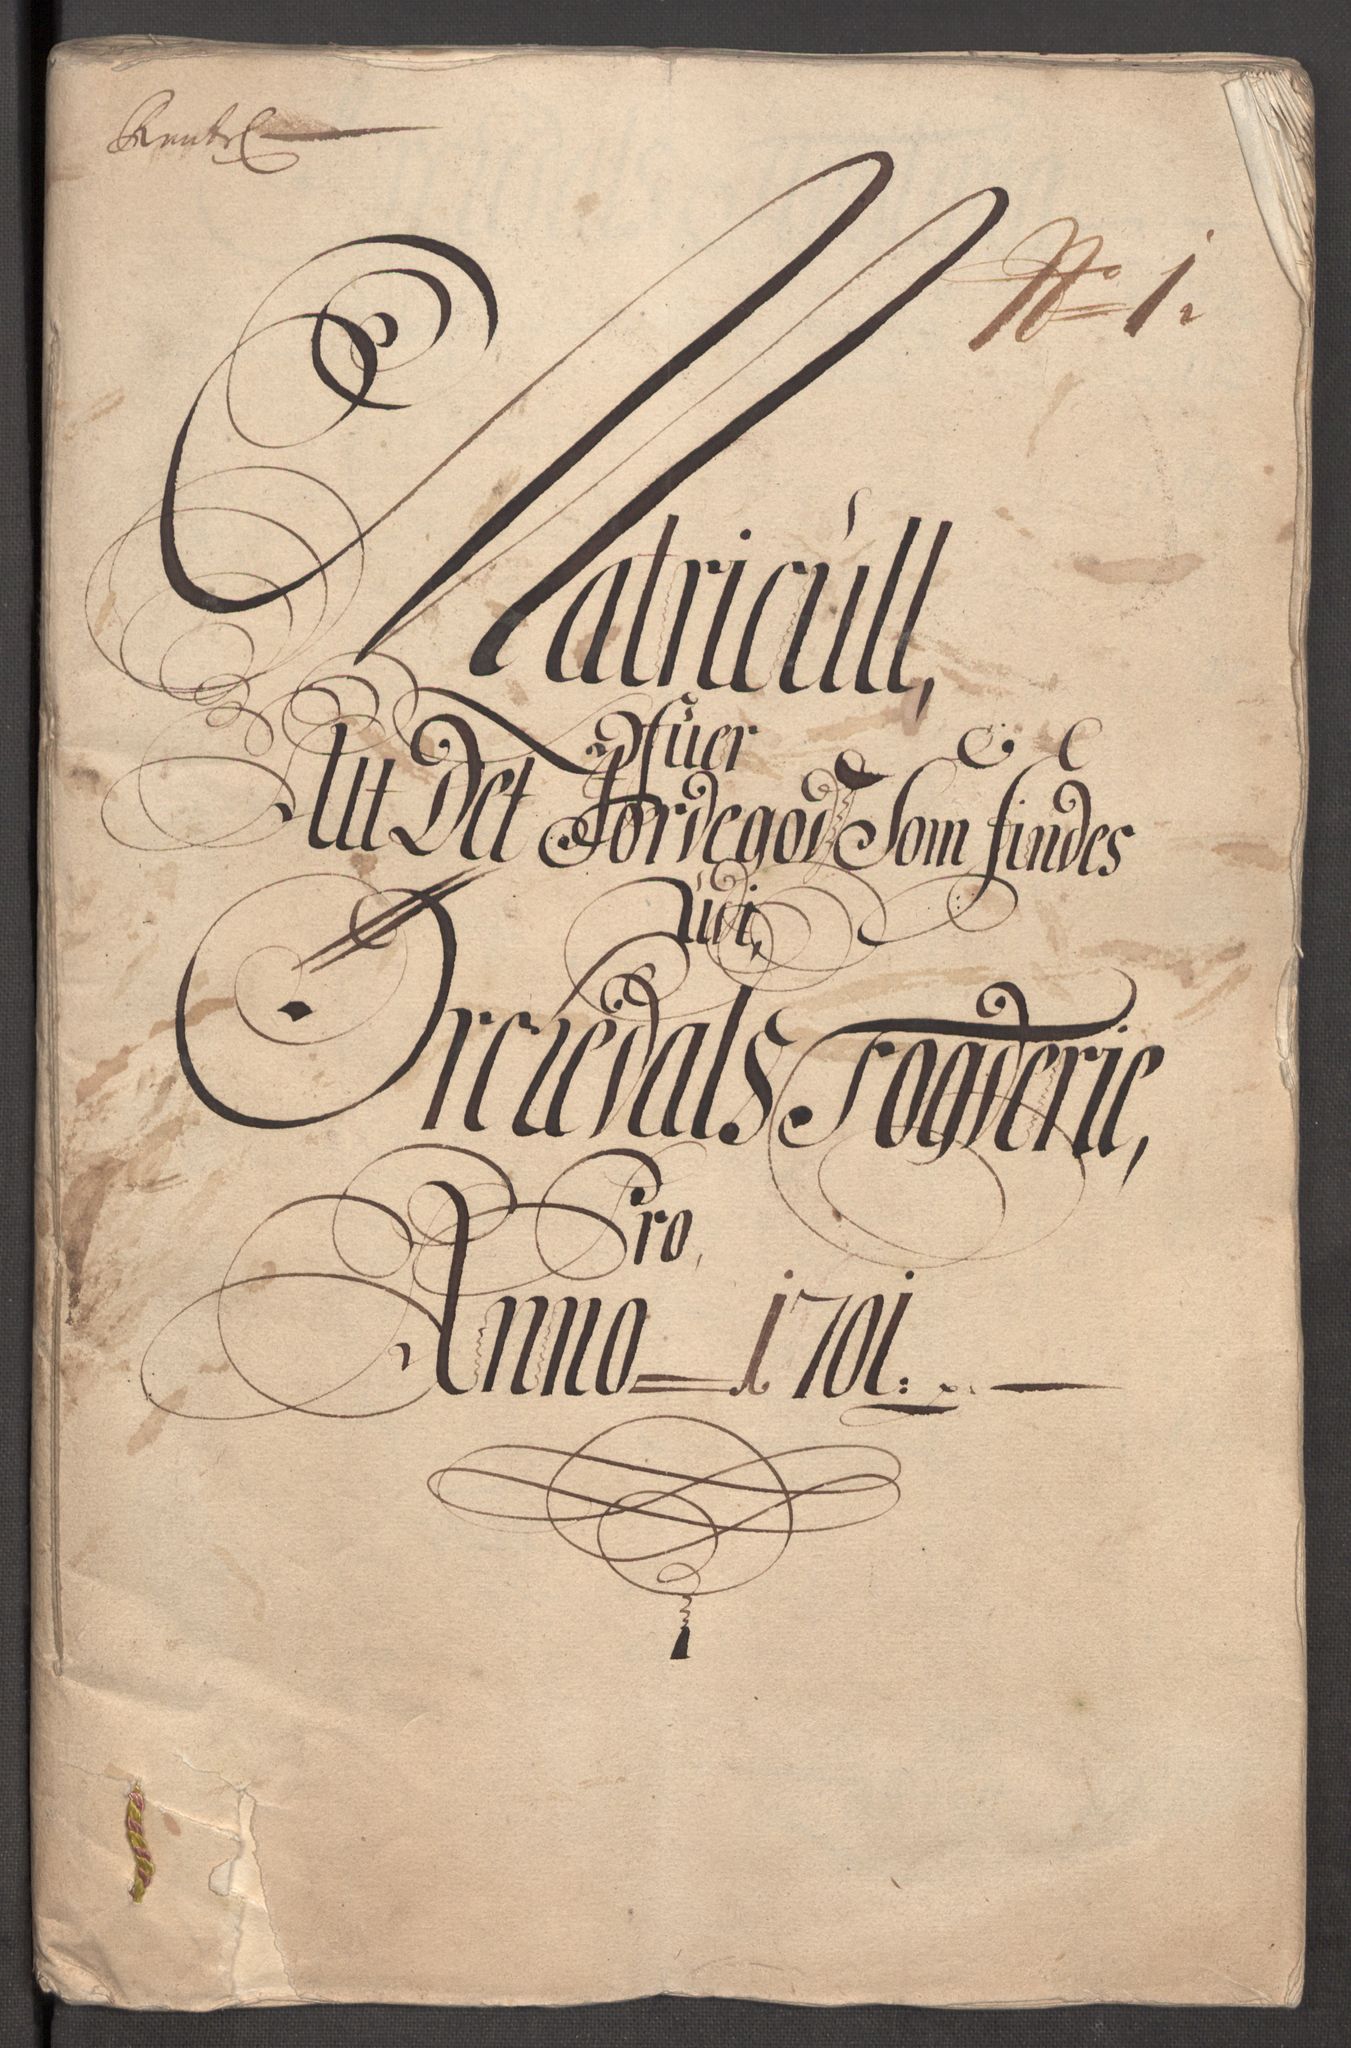 No 1.
Matricull,
ofuer
Alt Det Jordegods Som findes
Udi,
Orchedals Fogderie,
Pro,
Anno 1701.